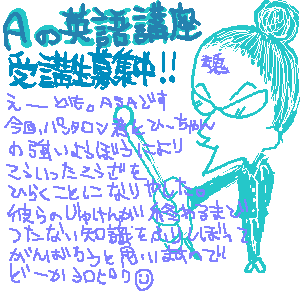 Aの英語講座
受講生募集中!!
えーども。ASAです
今回、パンタロン君とひーちゃん
の強いようぼうにより
こういったこうざを
ひらくことになりやした。
彼らのじゅけんが終わるまで
つたない知識をふりしぼって
がんばろうと思いますんで
どーかヨロピク